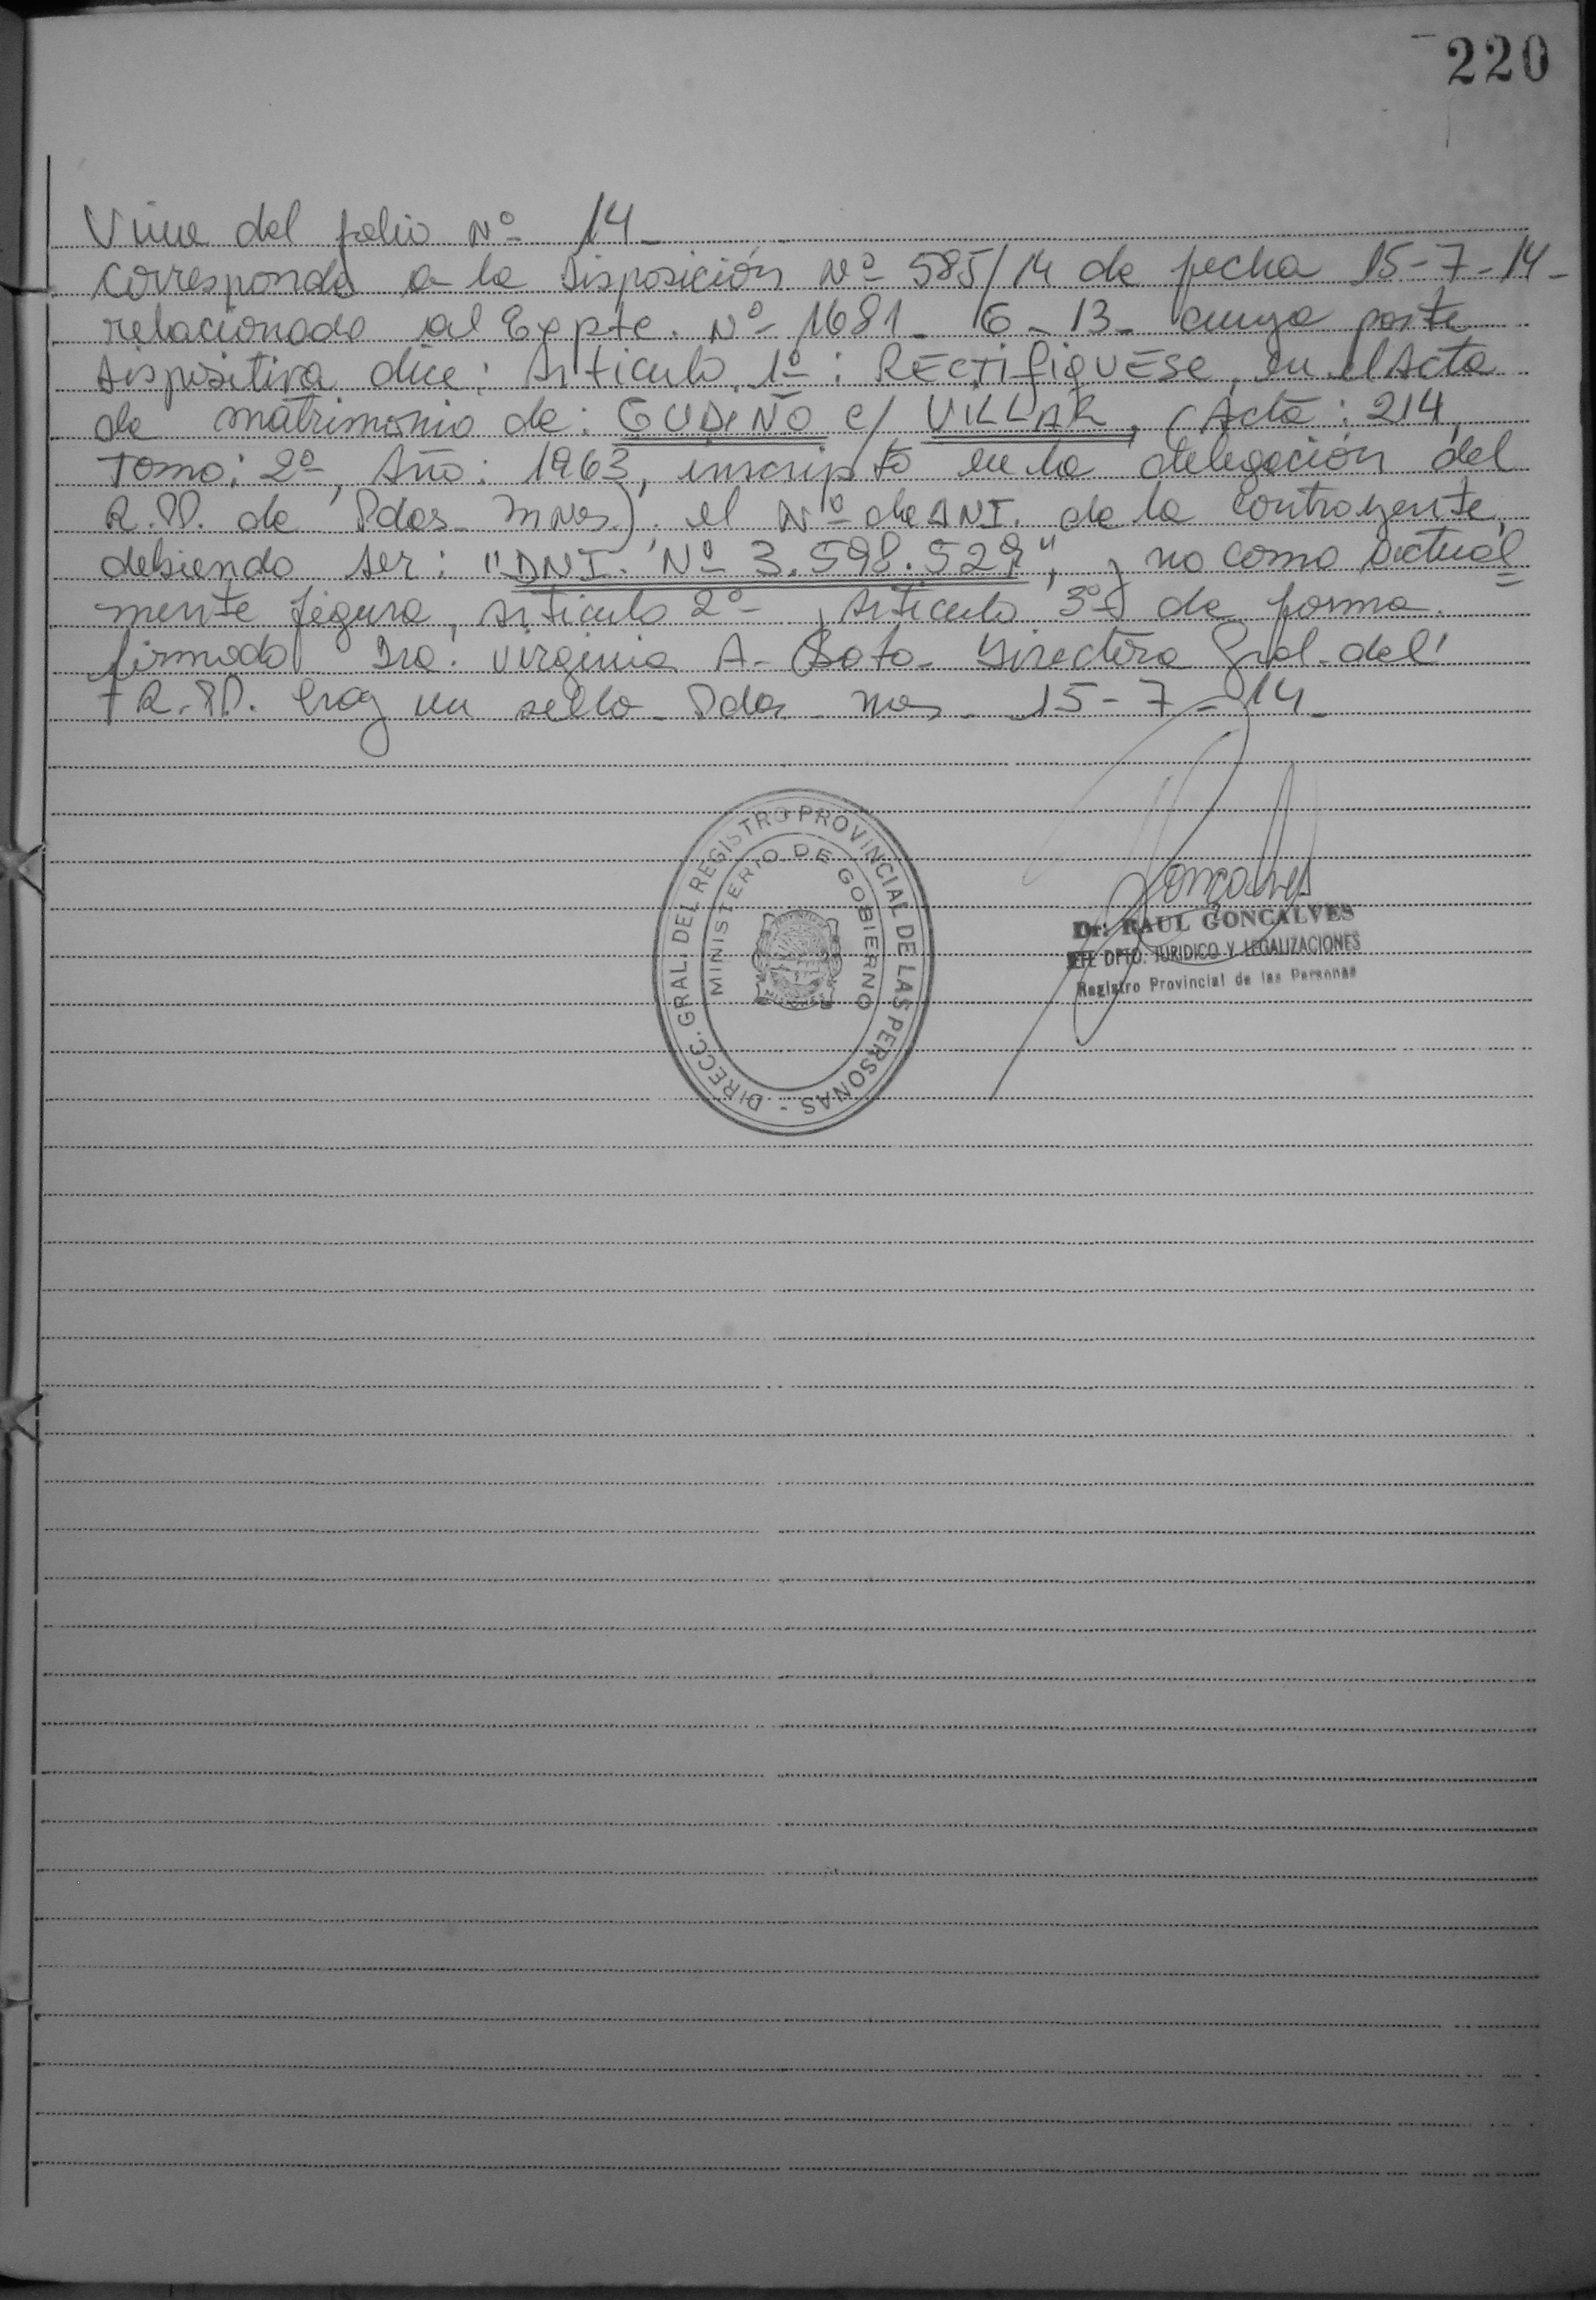 220
Viene del folio Nº 14-
Corresponde a la Disposición Nº 585/14 de fecha 15-7-14-
relacionado al Expte. Nº 1681- G-13- cuya parte
Dispositiva dice: Artículo 1º: RECTIFIQUESE, en el Acta
de matrimonio de: GUDIÑO c/ VILLAR, (Acta: 214,
Tomo: 2º, Año: 1963, inscripto en la delegación del
R.PP. de Pdas- Mnes). el Nº de DNI. de la contrayente,
debiendo ser: "DNI. Nº 3.598.529", y no como actual=
mente figura, Artículo 2º- Artículo 3º de forma.
firmado Dra. Virginia A. Soto- Directora Gral. del
R.PP. hay un sello- Pdas- Mnes- 15-7-14-
DIRECC. GRAL. DEL REGISTRO PROVINCIAL DE LAS PERSONAS -
MINISTERIO DE GOBIERNO
Goncalves
Dr. RAUL GONCALVES
JEFE DPTO. JURIDICO Y LEGALIZACIONES
Registro Provincial de las Personas